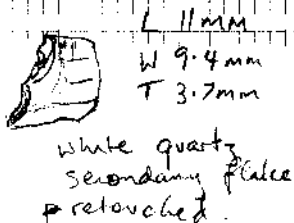 L 11 mm
W 9.4 mm
T 3.7mm
white quartz
secondary flake
retouched.